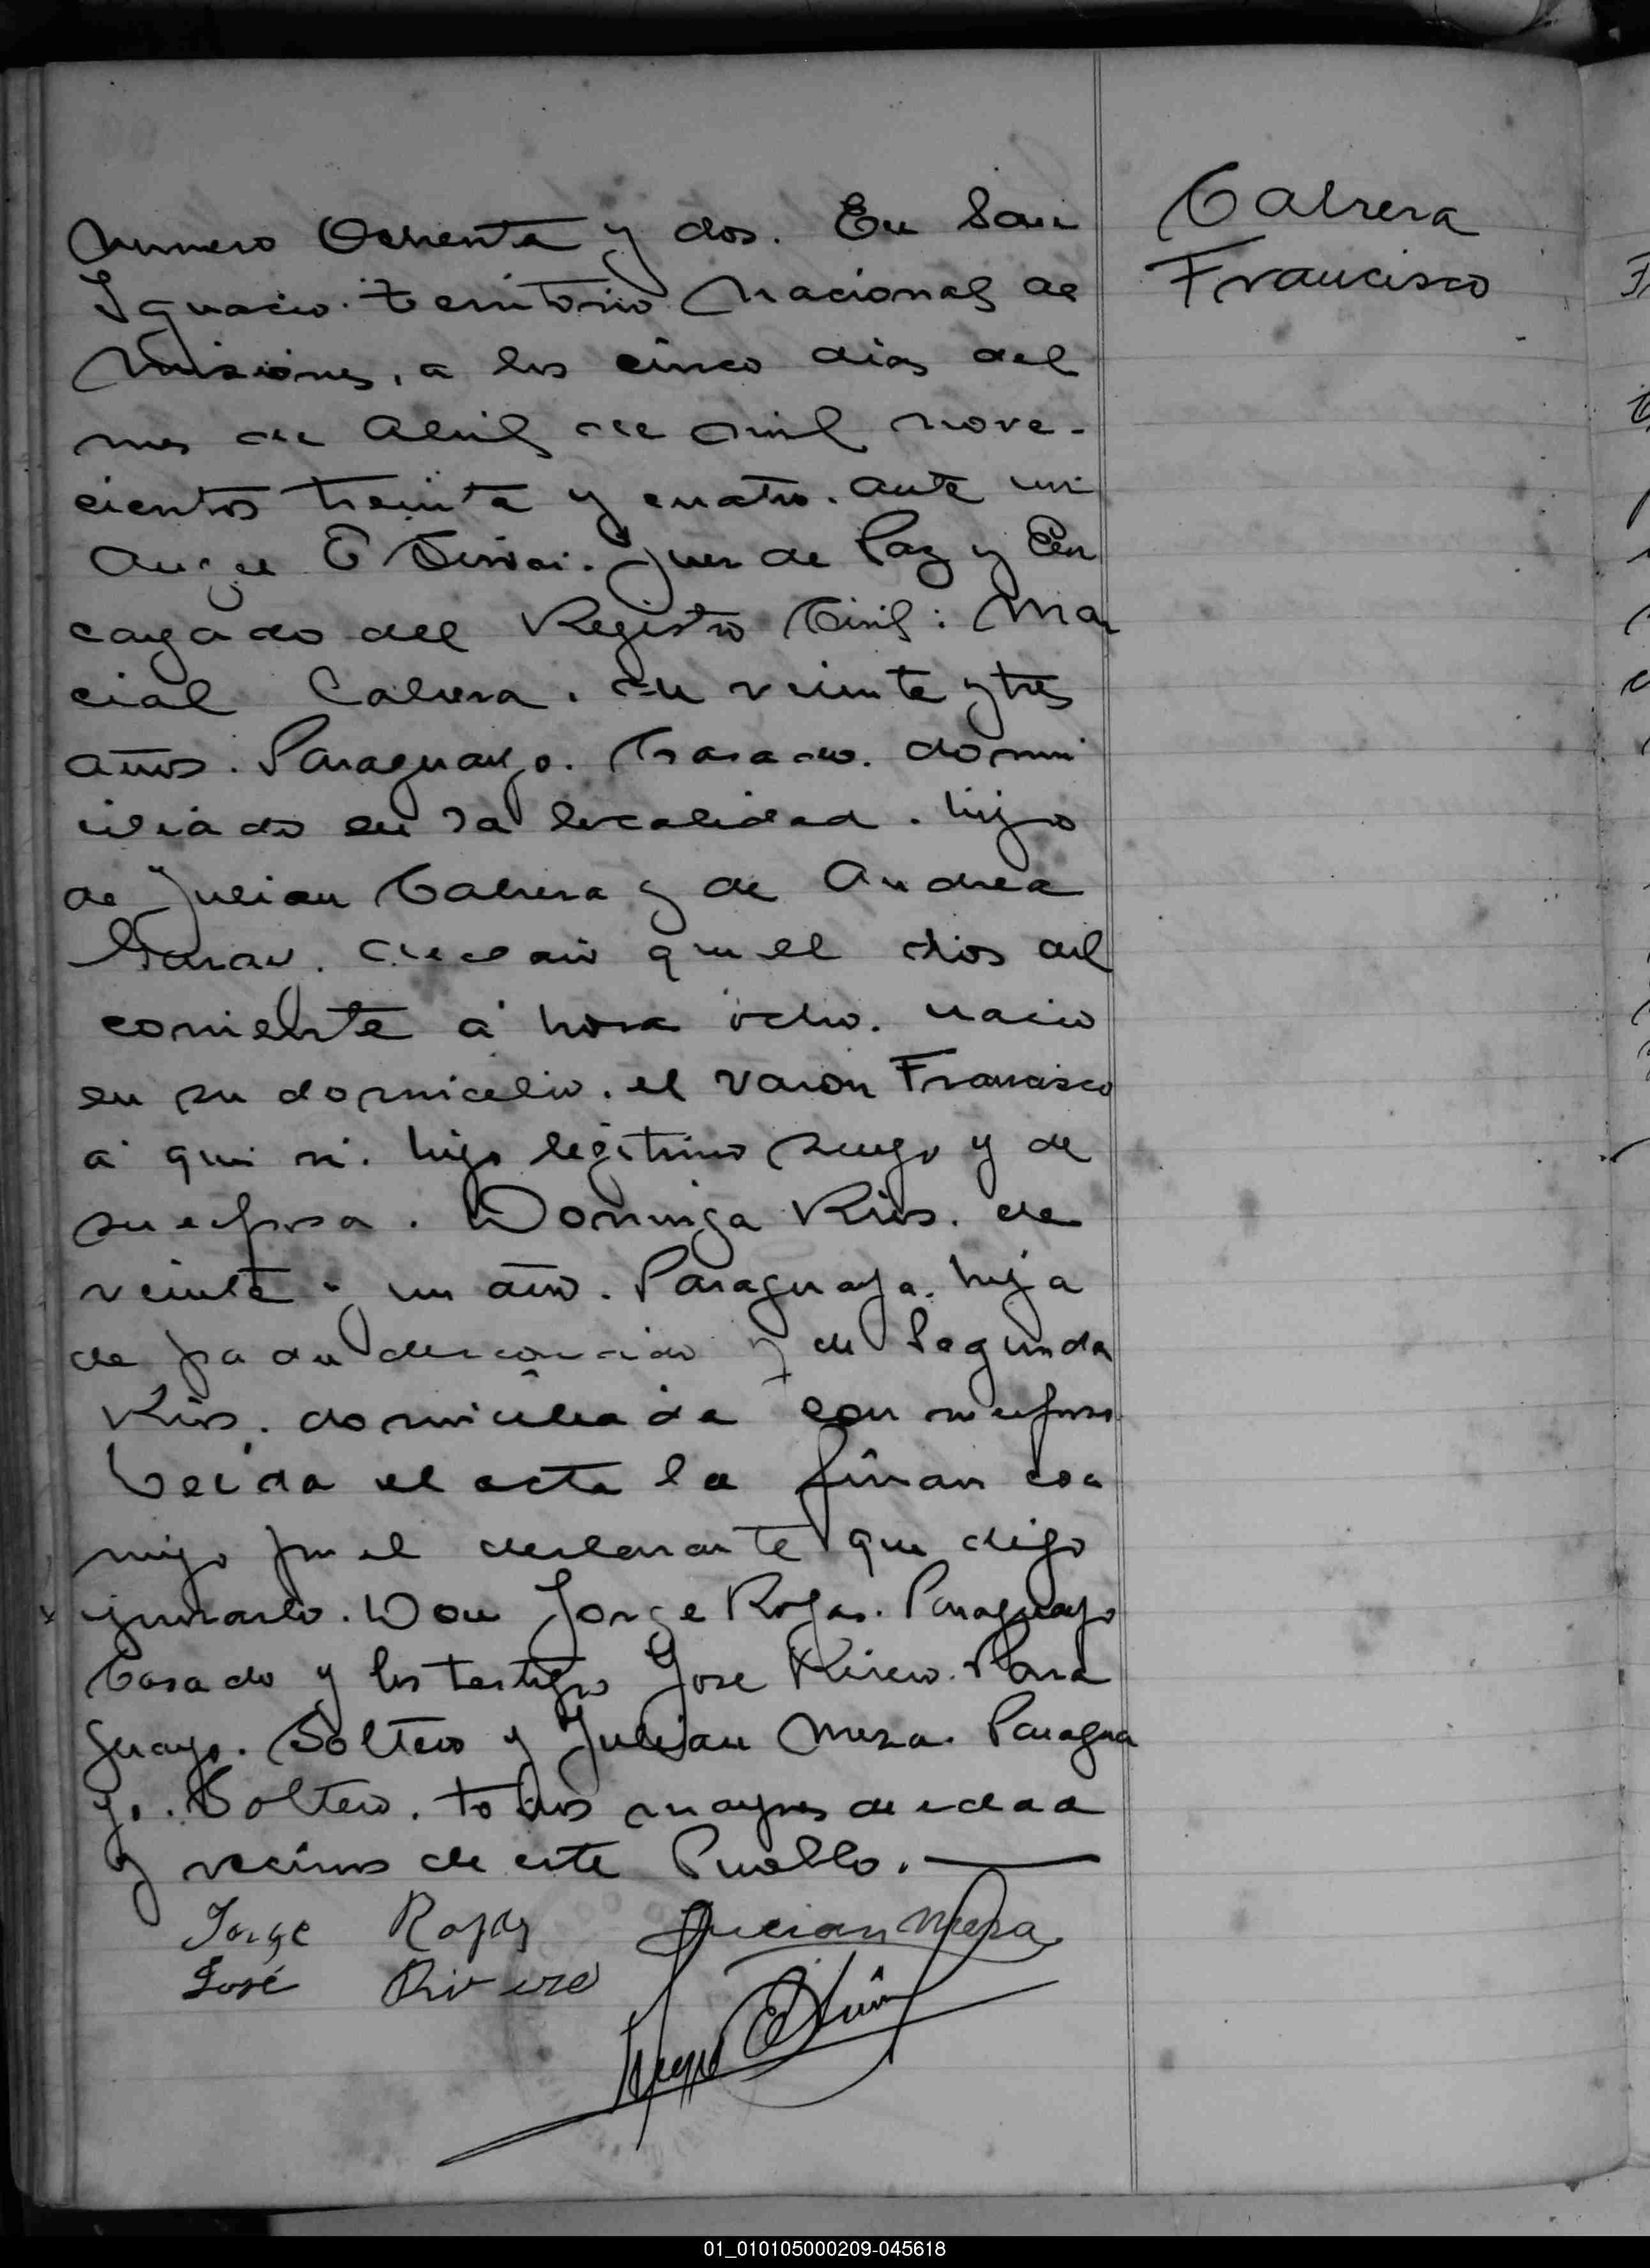 Cabrera
Francisco
Numero Ochenta y dos. En San
Ignacio. Territorio Nacional de
Misiones, a los cinco dias del
mes de Abril de mil nove-
cientos treinta y cuatro. ante mi
Juez de Paz y En
cargado del Registro Civil: Mar
cial Cabrera. de veinte y tres
años. Paraguayo. Casado. domi
ciliado en la localidad. hijo
de Julian Cabrera y de Andrea
declaró que el dios del
corriente a hora ocho. nacio
en su domicilio. el varon Francisco
a qui vi. hijo legitimo suyo y de
su esposa. Dominga Rios. de
veinte y un año. Paraguaya. hija
de padre desconocido y de Segunda
Rios. domiciliada con su esposo
Leida el acta la firman con
migo por el declarante que digo
Don Jorge Rojas. Paraguayo
Casado y los testigos Jose Rivero. Para
guayo. Soltero y Julian Meza. Paragua
yo. Soltero. todos mayores de edad
y vecinos de este Pueblo.
Jorge Rojas Julian Meza
José Rivero
01_010105000209-045618